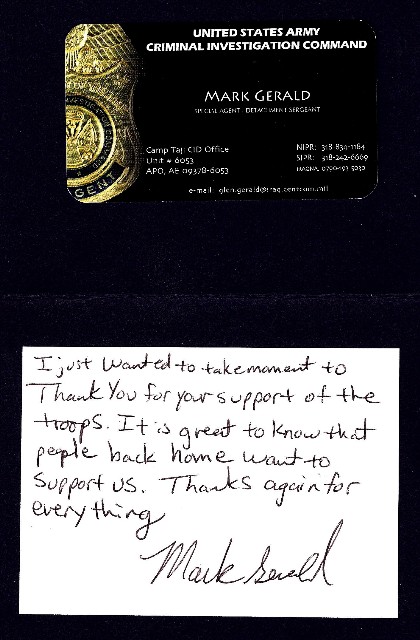 UNITED STATES ARMY
CRIMINAL INVESTIGATION COMMAND
MARK GERALD
SPECIAL AGENT - DETACHMENT SERGEANT
Camp Taji CID Office
Unit # 6053
APO, AE 09378-6053
NIPR: 318-834-1184
SIPR: 318-242-6669
e-mail: glen.gerald@iraq.centcom.mil
AGENT
I just wanted to take moment to
Thank You for your support of the
troops. It is great to know that
people back home want to
support us. Thanks again for
everything
Mark Gerald